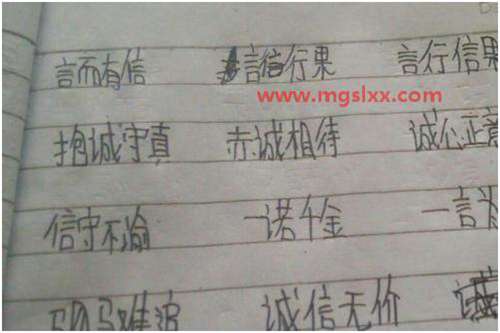 言而有信 言信行果 言行信果
www.mgslxx.com
抱诚守真 赤诚相待 诚心正意
信守不渝 一诺千金 一言为
驷马难追 诚信无价